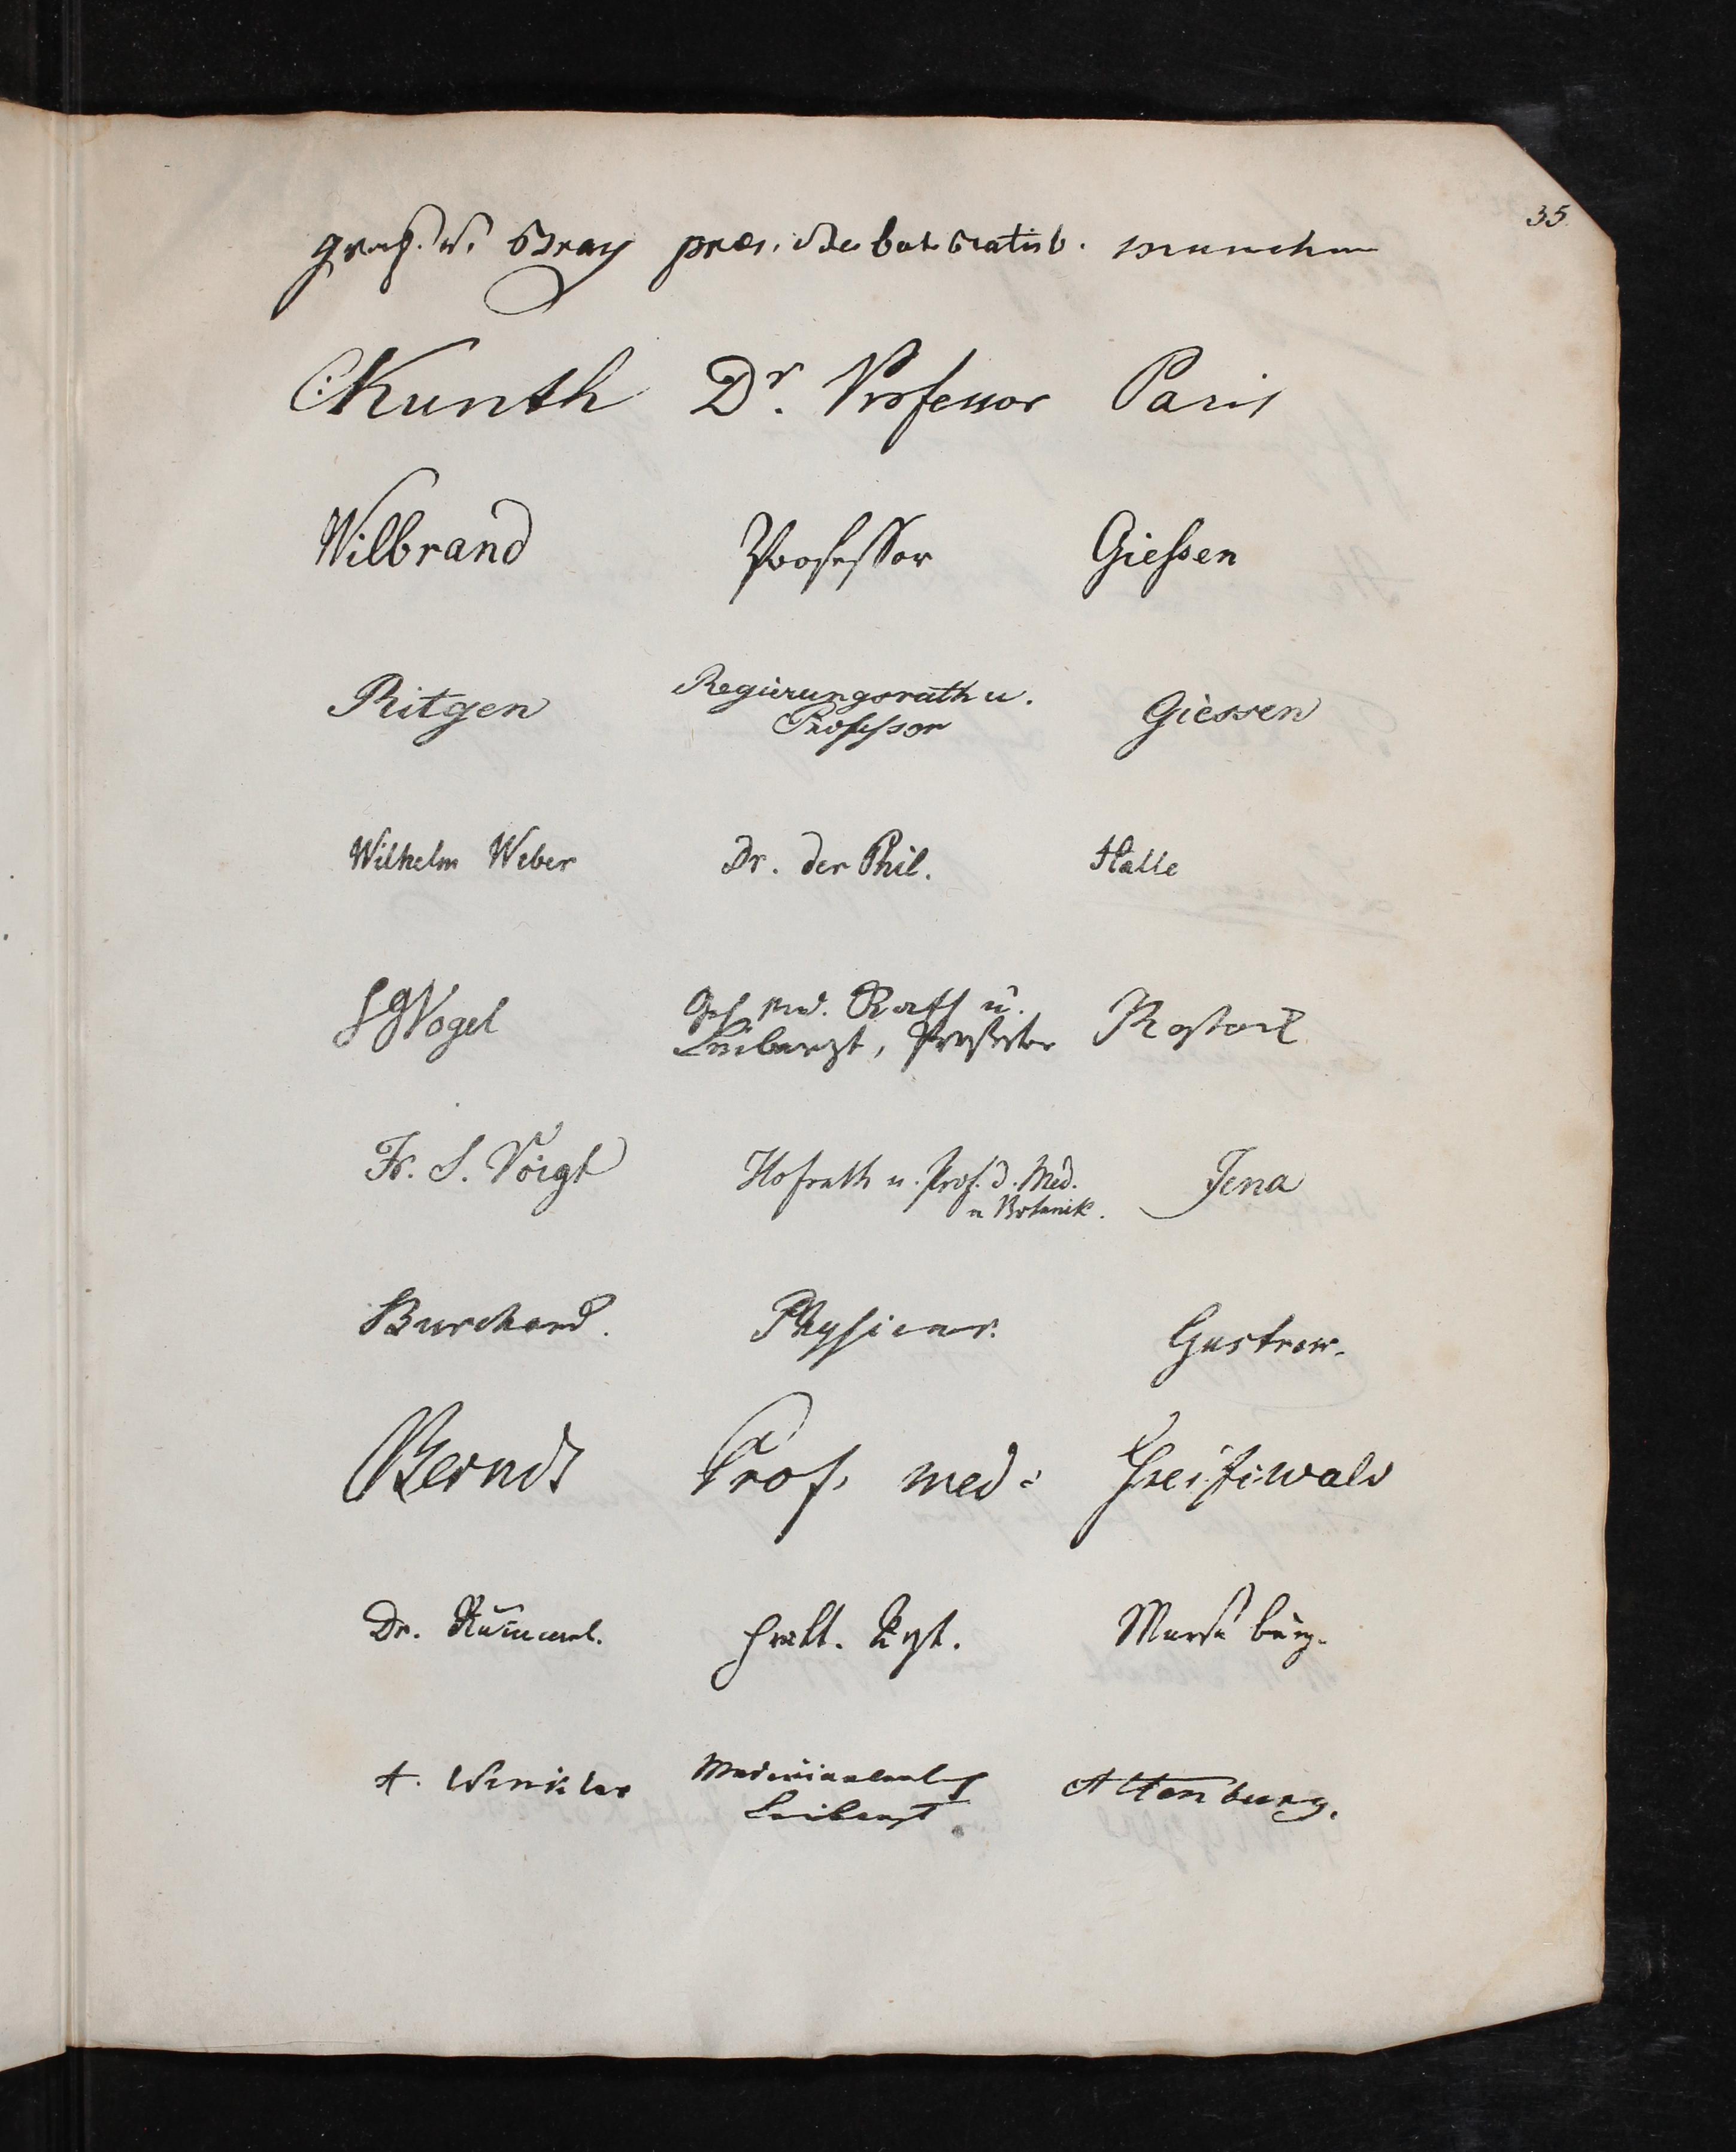 35
graf. v. Bray præs. der bot. Ratisb. München
CKunth Dr. Professor Paris
Wilbrand Professor Gießen
Ritgen Regierungsrath u. Giessen
Professor
Wilhelm Weber Dr. der Phil. Halle
SGVogel Geh. Med. Rath u. Rostock
Leibarzt, Professor
Fr. S. Voigt Hofrath u. Prof. d. Med. Jena
u Botanik.
Burchard. Physicus. Gustrow.
Berndt Prof. med: Greifswald
Dr. prakt. Arzt. Merseburg.
A. Winkler Medicinalrath Altenburg.
Leibarzt